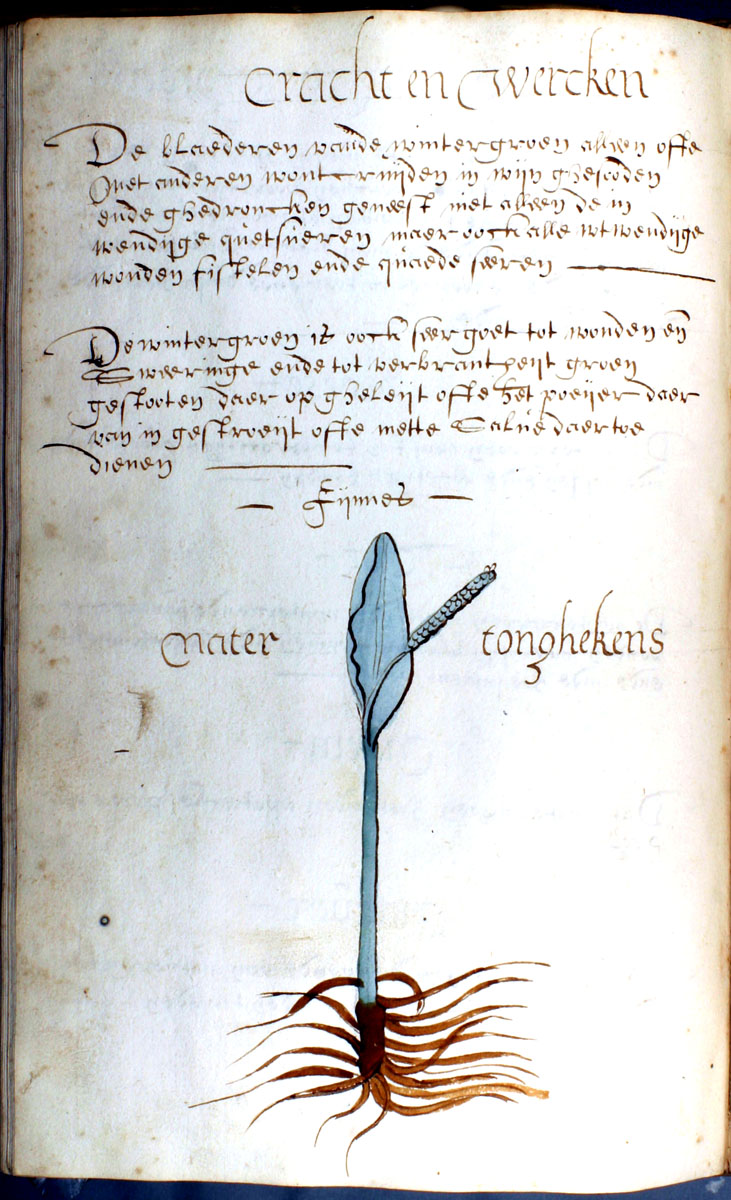 Cracht en Wercken
De blaederen vande wintergroen alleen offe
Met anderen wontcruijden in wijn ghesoden
ende ghedroncken geneest niet alleen de in
wendijge quetsueren maer oock alle wtwendijge
wonden fistelen ende quaede seeren
De wintergroen is oock seer goet tot wonden en̄
Sweeringe ende tot verbrantheijt groen
gestooten daer op gheleijt ofte het poeijer daer
van in gestroeijt offe mette Salue daer toe
dienen
— Fijnnes —
Nater tonghekens